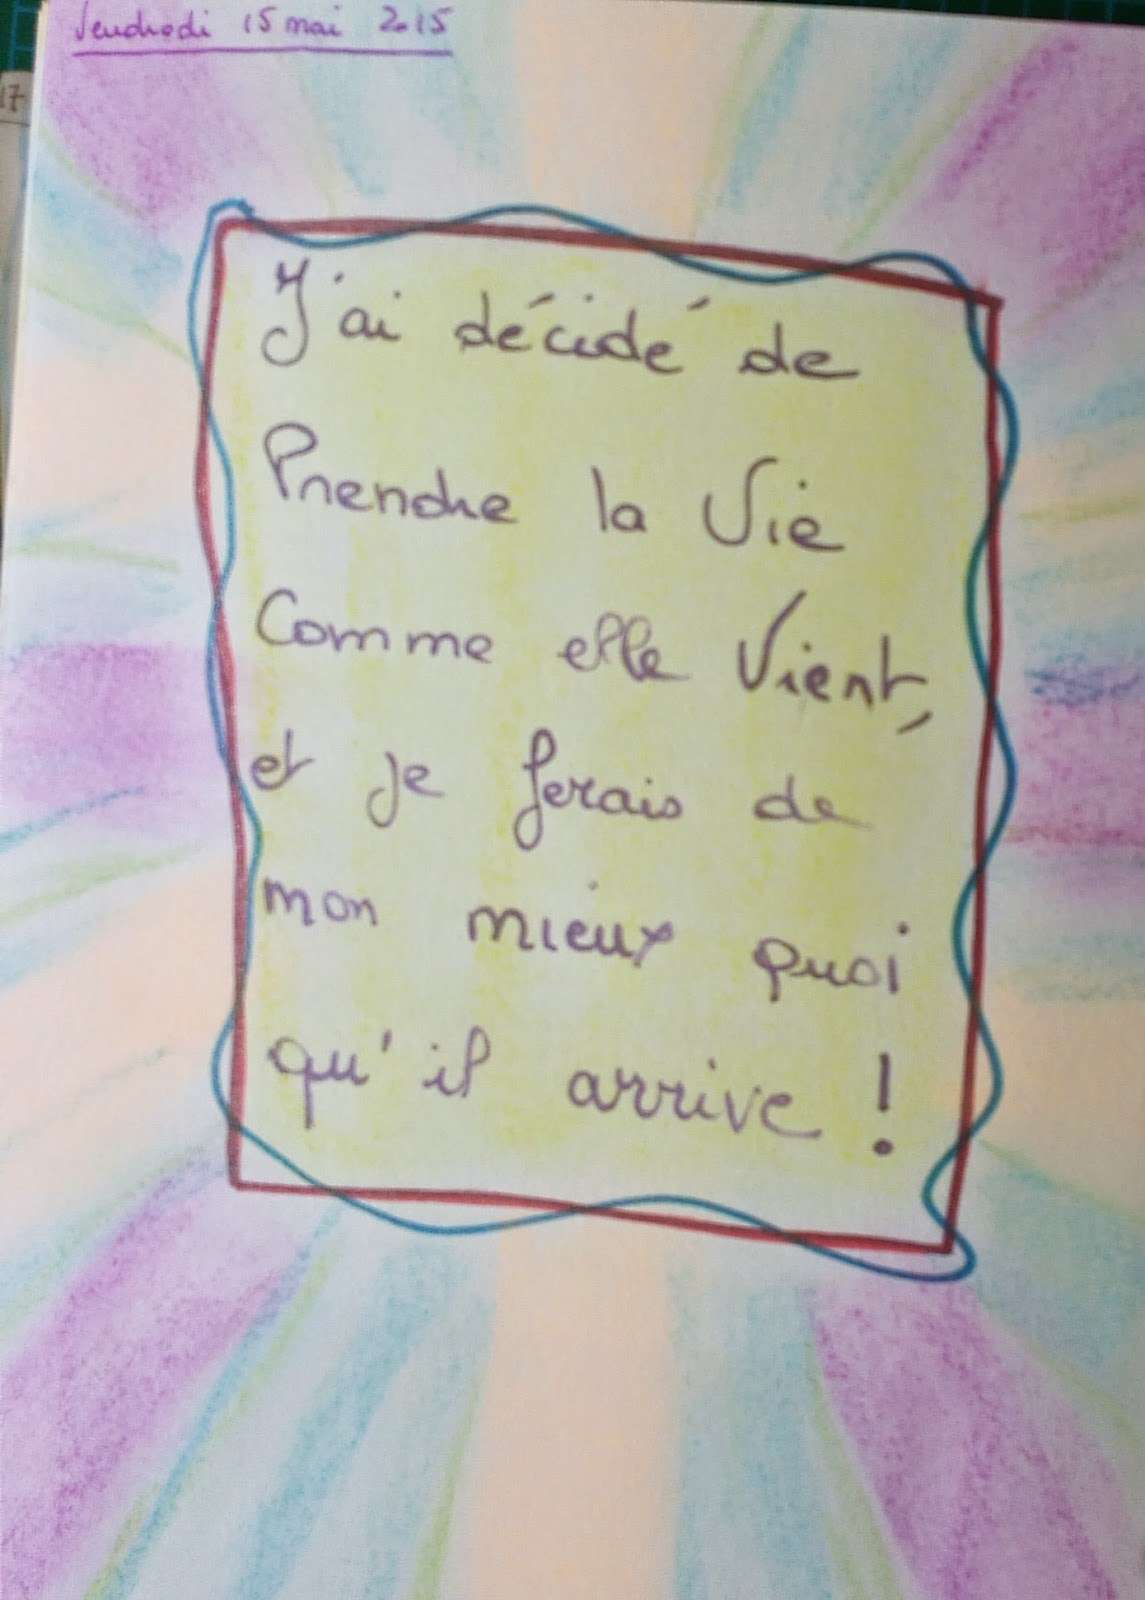 Vendredi 15 mai 2015
17
J'ai décidé de
Prendre la Vie
Comme elle Vient,
et je ferais de
mon mieux quoi
qu'il arrive !